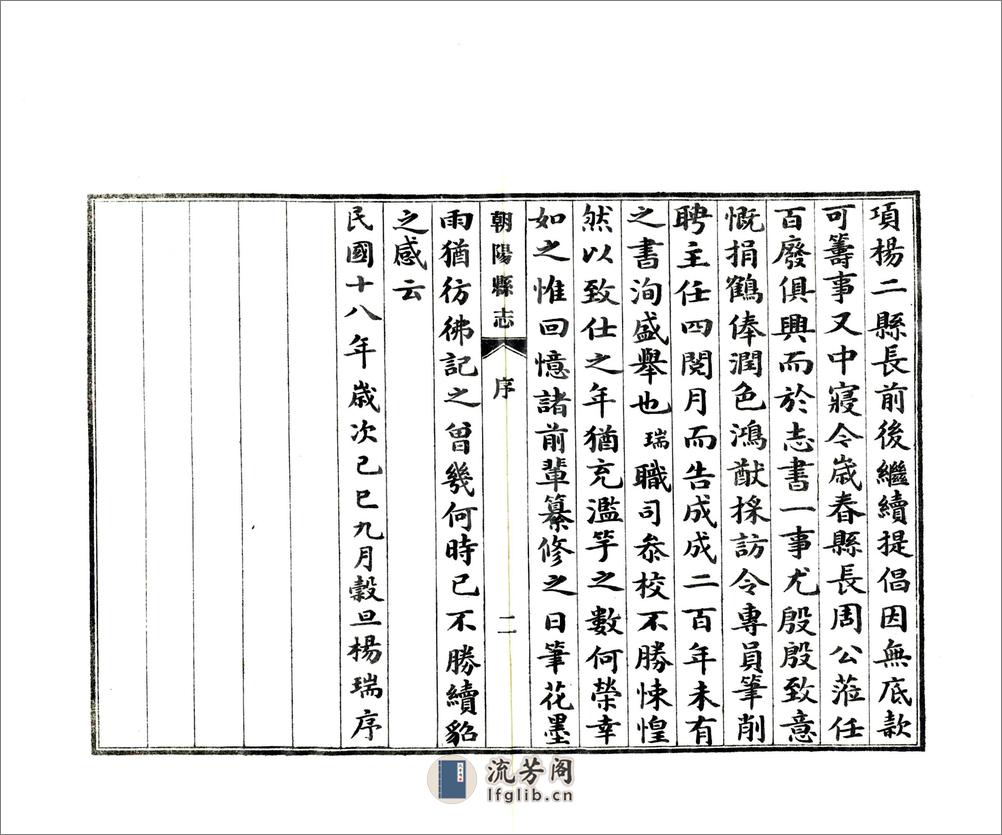 項楊二縣長前後繼續提倡因無底款
可籌事又中寢令歲春縣長周公蒞任
百廢俱興而於志書一事尤殷殷致意
慨捐鶴俸潤色鴻猷採訪令專員筆削
聘主任四閱月而告成成二百年未有
之書洵盛舉也瑞職司叅校不勝悚惶
然以致仕之年猶充濫竽之數何榮幸
如之惟回憶諸前輩纂修之日筆花墨
朝陽縣志 序 二
雨猶彷彿記之曾幾何時已不勝續貂
之感云
民國十八年歲次己巳九月穀旦楊瑞序
流芳阁
lfglib.cn